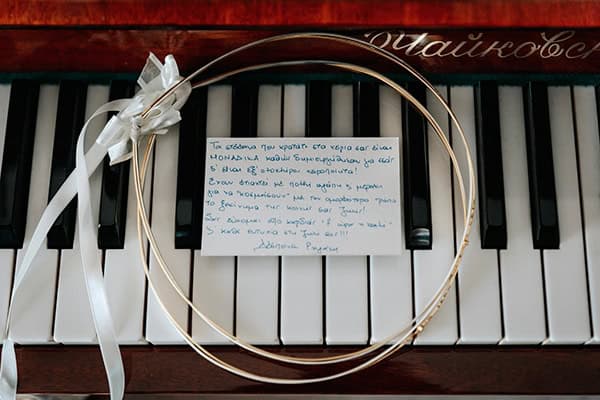 Чайковск
Τα στέφανα που κρατάτε στα χέρια σας είναι
ΜΟΝΑΔΙΚΑ καθώς δημιουργήθηκαν για εσάς
& είναι εξ' ολοκλήρου χειροποίητα!
Έχουν φτιαχτεί με πολλή αγάπη & μεράκι
για να "κοσμήσουν" με τον ομορφότερο τρόπο
το ξεκίνημα της κοινής σας ζωής!
Σας εύχομαι
& κάθε ευτυχία στη ζωή σας!!!
Δέσποινα